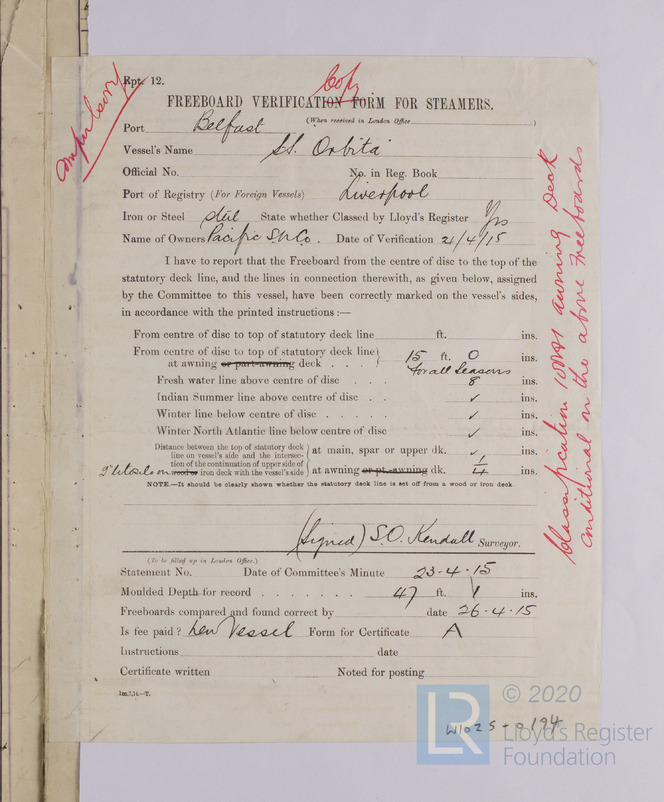 Rpt. 12.
Copy
Compulsory
FREEBOARD VERIFICATION FORM FOR STEAMERS.
(When received in London Office )
Port Belfast
Vessel's Name SS. Orbita
Official No. No. in Reg. Book
Port of Registry (For Foreign Vessels) Liverpool
Iron or Steel steel State whether Classed by Lloyd's Register Yes
Name of Owners Pacific S.N.Co. Date of Verification 21/4/15
I have to report that the Freeboard from the centre of disc to the top of the
statutory deck line, and the lines in connection therewith, as given below, assigned
by the Committee to this vessel, have been correctly marked on the vessel's sides,
in accordance with the printed instructions :—
From centre of disc to top of statutory deck line ft. ins.
From centre of disc to top of statutory deck line
at awning or part-awning deck . . . 15 ft. 0 ins.
for all Seasons
Fresh water line above centre of disc . . . 8 ins.
Indian Summer line above centre of disc . . ✓ ins.
Winter line below centre of disc . . . . . ✓ ins.
Winter North Atlantic line below centre of disc ✓ ins.
Distance between the top of statutory deck
line on vessel's side and the intersec-
tion of the continuation of upper side of
wood or iron deck with the vessel's side
at main, spar or upper dk. ✓ ins.
at awning or pt.-awning dk. 1/4 ins.
NOTE.—It should be clearly shown whether the statutory deck line is set off from a wood or iron deck.
(Signed) S.O. Kendall Surveyor.
(To be filled up in London Office.)
Statement No. Date of Committee's Minute 23-4-15
Moulded Depth for record . . . . . . . 47 ft. 1 ins.
Freeboards compared and found correct by date 26-4-15
Is fee paid? New Vessel Form for Certificate A
Instructions date
Certificate written Noted for posting
Classification 100A1 awning Deck
conditional on the above Freeboards
© 2020
LR
Lloyd's Register
Foundation
W1025-0194